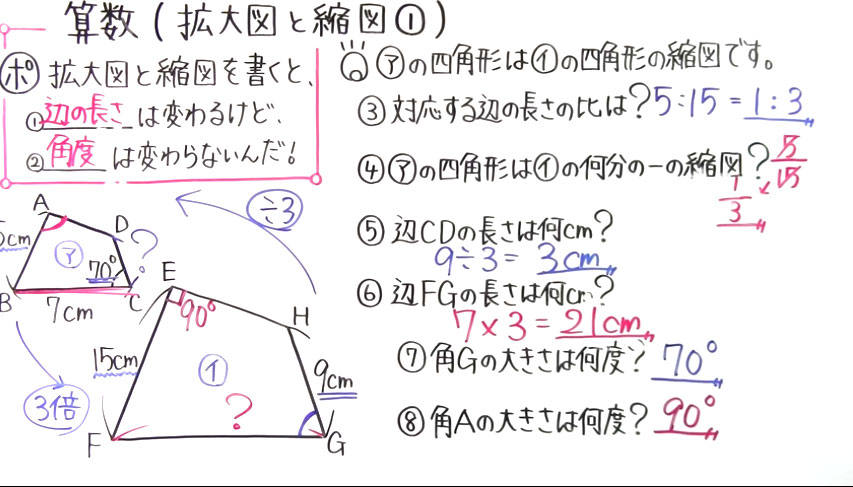 算数(拡大図と縮図①)
ポ 拡大図と縮図を書くと、
①辺の長さは変わるけど、
②角度は変わらないんだ!
㋐の四角形は㋑の四角形の縮図です。
③対応する辺の長さの比は?5:15=1:3
④㋐の四角形は㋑の何分の一の縮図?5/15
1/3
⑤辺CDの長さは何cm?
9÷3=3cm
⑥辺FGの長さは何cm?
7×3=21cm
⑦角Gの大きさは何度?70°
⑧角Aの大きさは何度?90°
÷3
A
D
?
5cm
㋐
70°
B
C
7cm
3倍
E
90°
H
15cm
㋑
9cm
?
F
G